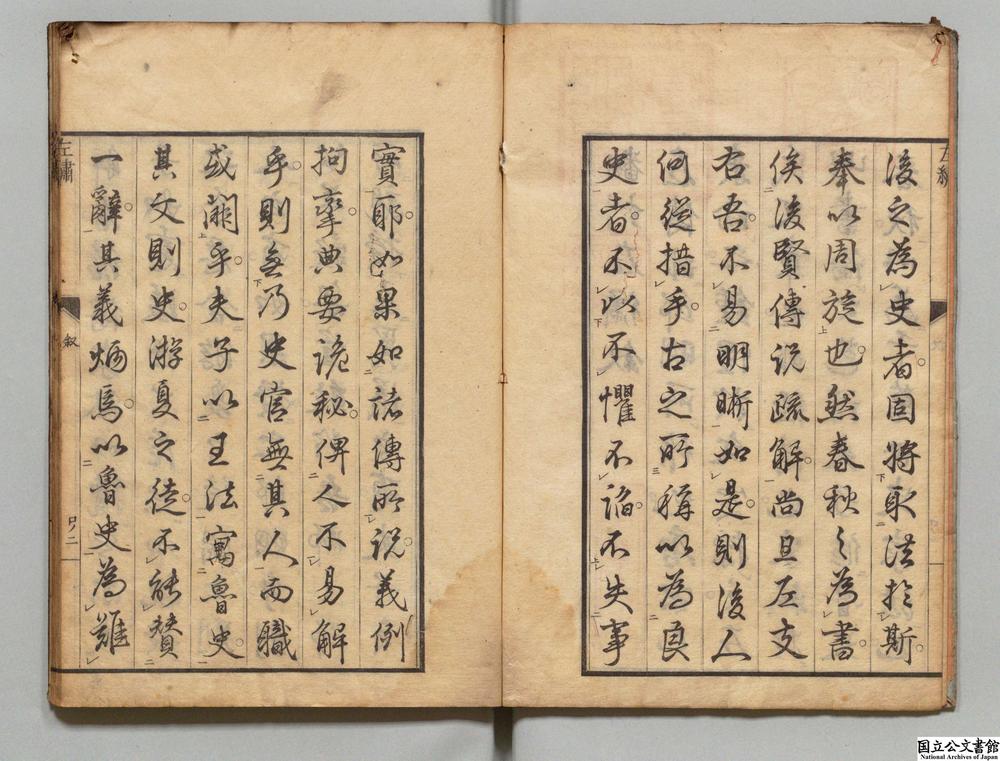 後之為史者固將取法於斯
奉以周旋也然春秋之為書
俟後賢傳説疏解尚且左支
右吾不易明晰如是則後人
何從措手古之所稱以為良
史者不以不懼不諂不失事
實耶如果如諸傳所説義例
拘牽典要詭秘俾人不易解
乎則無乃史官無其人而職
或闕乎夫子以王法寓魯史
其文則史游夏之徒不能賛
一辭其義炳焉以魯史為難
左繡
叙
口二
国立公文書館
National Archives of Japan